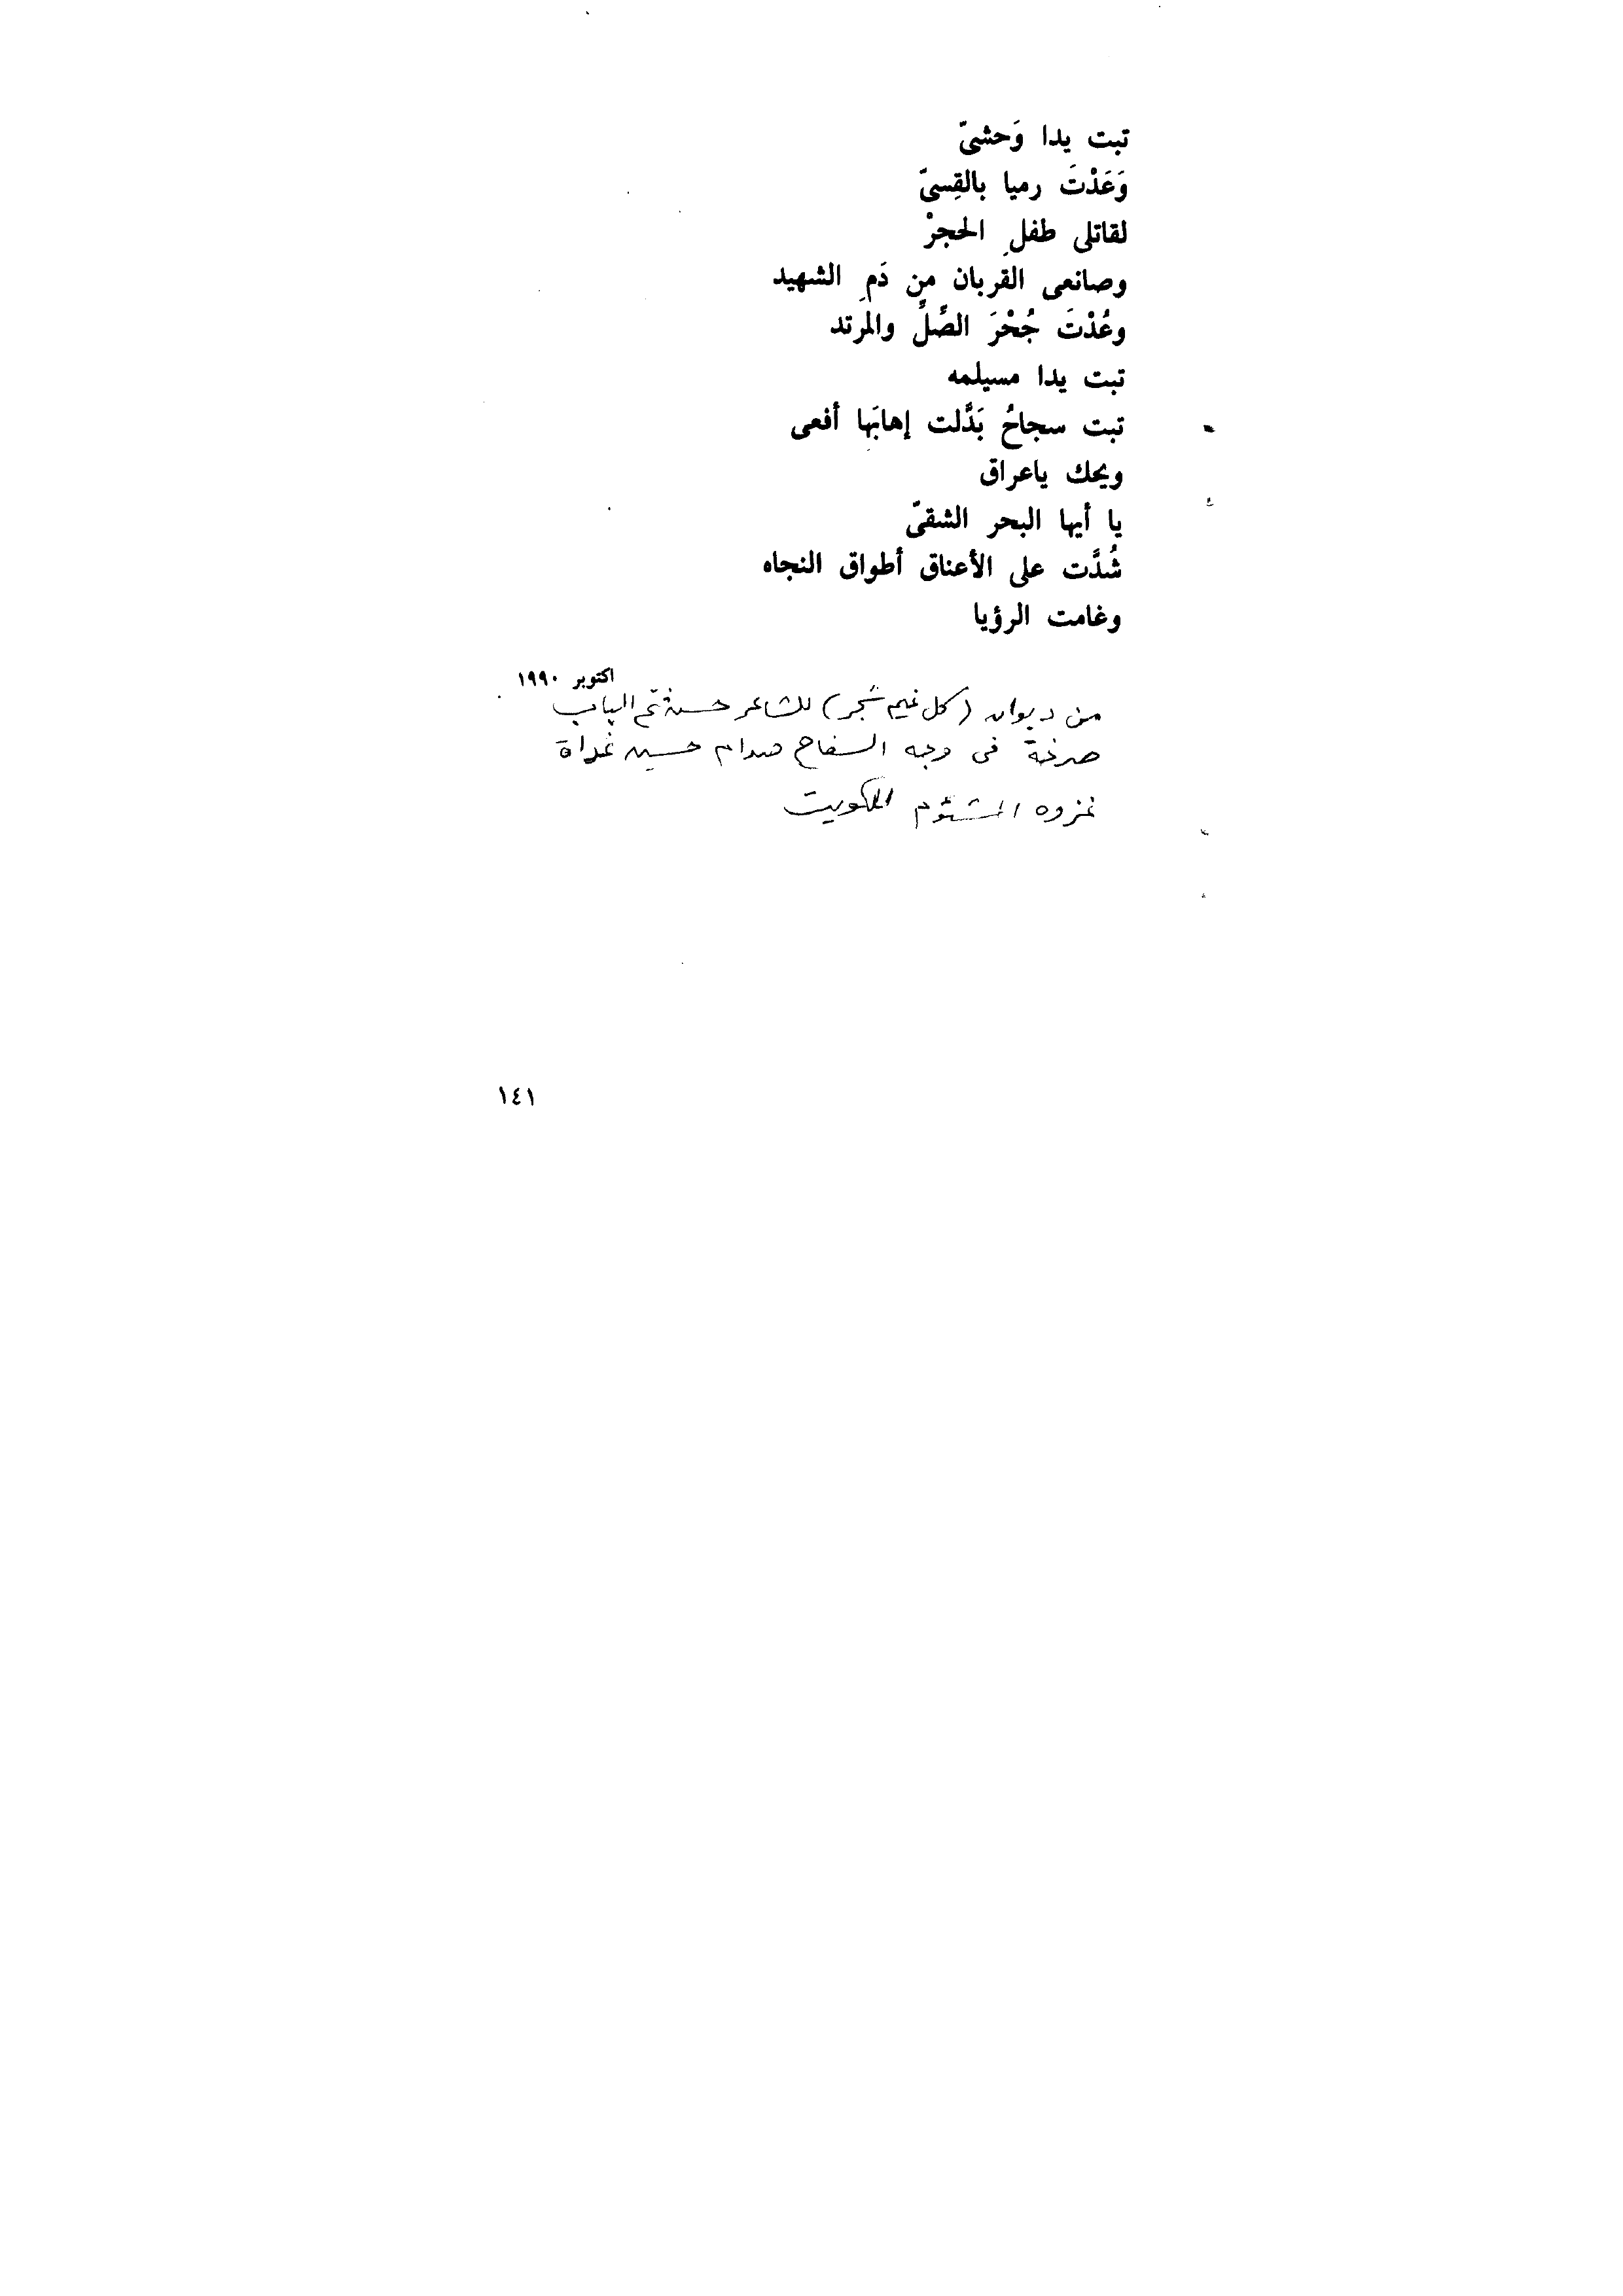 تبت يدا وَحشىّ
وَعَدْتَ رميا بالقِسىّ
لقاتلى طفلِ الحجرْ
وصانعى القربان مِن دَمِ الشهيد
وعُدْتَ جُحْرَ الصِّلِّ والمرتد
تبت يدا مسيلمه
تبت سجاحُ بَدَّلت إهابَها أفعى
ويحك ياعراق
يا أيها البحر الشقىّ
شُدَّت على الأعناق أطواق النجاه
وغامت الرؤيا
اكتوبر ١٩٩٠
من ديوان (كل غيم شجر) للشاعر حسن فتح الباب
صرخة فى وجه السفاح صدام حسين غداة
غزوه المشئوم للكويت
١٤١